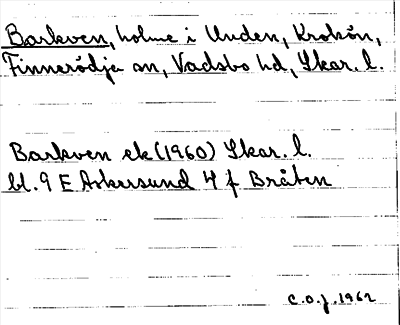 Barkven, holme i Unden, Krokön,
Finnerödja sn, Vadsbo hd, Skar. l.
Barkven ek (1960) Skar. l.
bl. 9 E Askersund 4 f Bråten
C.O.J. 1962